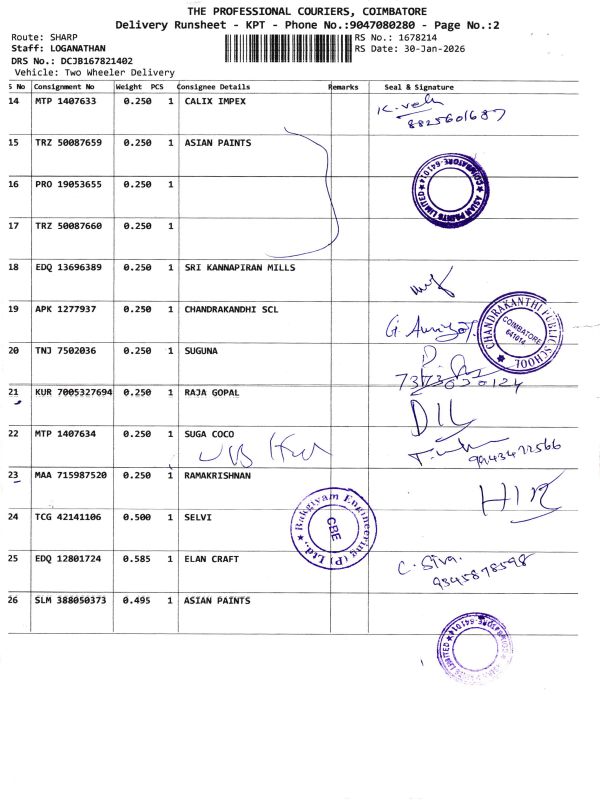 THE PROFESSIONAL COURIERS, COIMBATORE
Delivery Runsheet - KPT - Phone No.:9047080280 - Page No.:2
Route: SHARP RS No.: 1678214
Staff: LOGANATHAN RS Date: 30-Jan-2026
DRS No.: DCJB167821402
Vehicle: Two Wheeler Delivery
S No Consignment No Weight PCS Consignee Details Remarks Seal & Signature
14 MTP 1407633 0.250 1 CALIX IMPEX
8825601687
15 TRZ 50087659 0.250 1 ASIAN PAINTS
ASIAN PAINTS LIMITED COIMBATORE-641014
16 PRO 19053655 0.250 1
17 TRZ 50087660 0.250 1
18 EDQ 13696389 0.250 1 SRI KANNAPIRAN MILLS
19 APK 1277937 0.250 1 CHANDRAKANDHI SCL
CHANDRAKANTHI PUBLIC SCHOOL
COIMBATORE
641014
20 TNJ 7502036 0.250 1 SUGUNA
21 KUR 7005327694 0.250 1 RAJA GOPAL
DIL
22 MTP 1407634 0.250 1 SUGA COCO
9943472566
23 MAA 715987520 0.250 1 RAMAKRISHNAN
24 TCG 42141106 0.500 1 SELVI
Bakgiyam Engineering (P) Ltd.,
CBE
25 EDQ 12801724 0.585 1 ELAN CRAFT
C. Siva.
9345878598
26 SLM 388050373 0.495 1 ASIAN PAINTS